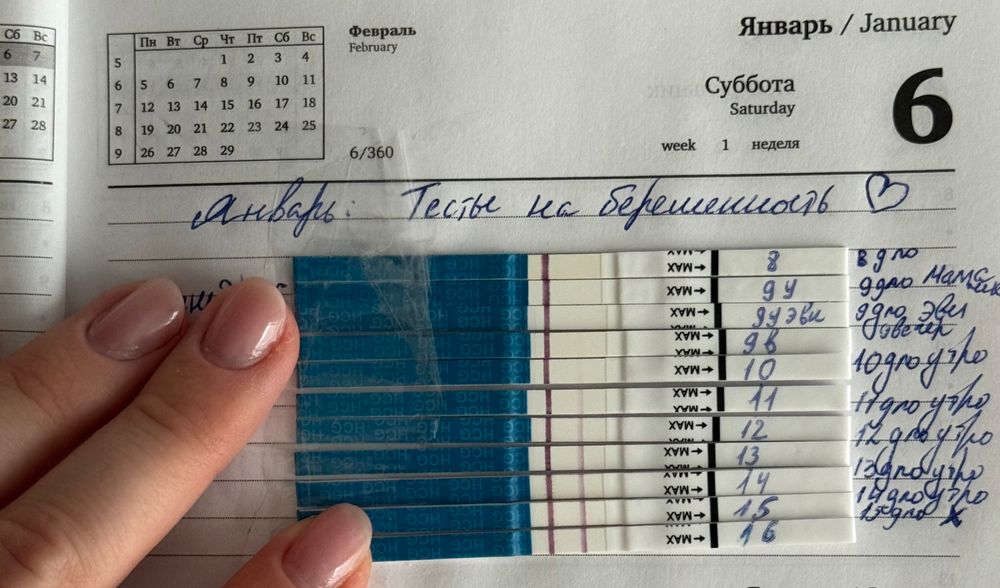 Сб Вс
6 7
13 14
20 21
27 28
Пн Вт Ср Чт Пт Сб Вс
5 1 2 3 4
6 5 6 7 8 9 10 11
7 12 13 14 15 16 17 18
8 19 20 21 22 23 24 25
9 26 27 28 29
Февраль
February
6/360
Январь / January
Суббота
Saturday
6
week 1 неделя
Январь: Тесты на беременность
MAX 8 8 дпо
MAX 9у 9дпо мама
MAX 9у эви 9дпо эви
MAX 9в вечер
MAX 10 10 дпо утро
MAX 11 11 дпо утро
MAX 12 12 дпо утро
MAX 13 13 дпо утро
MAX 14 14 дпо утро
MAX 15 15 дпо
MAX 16
HCG